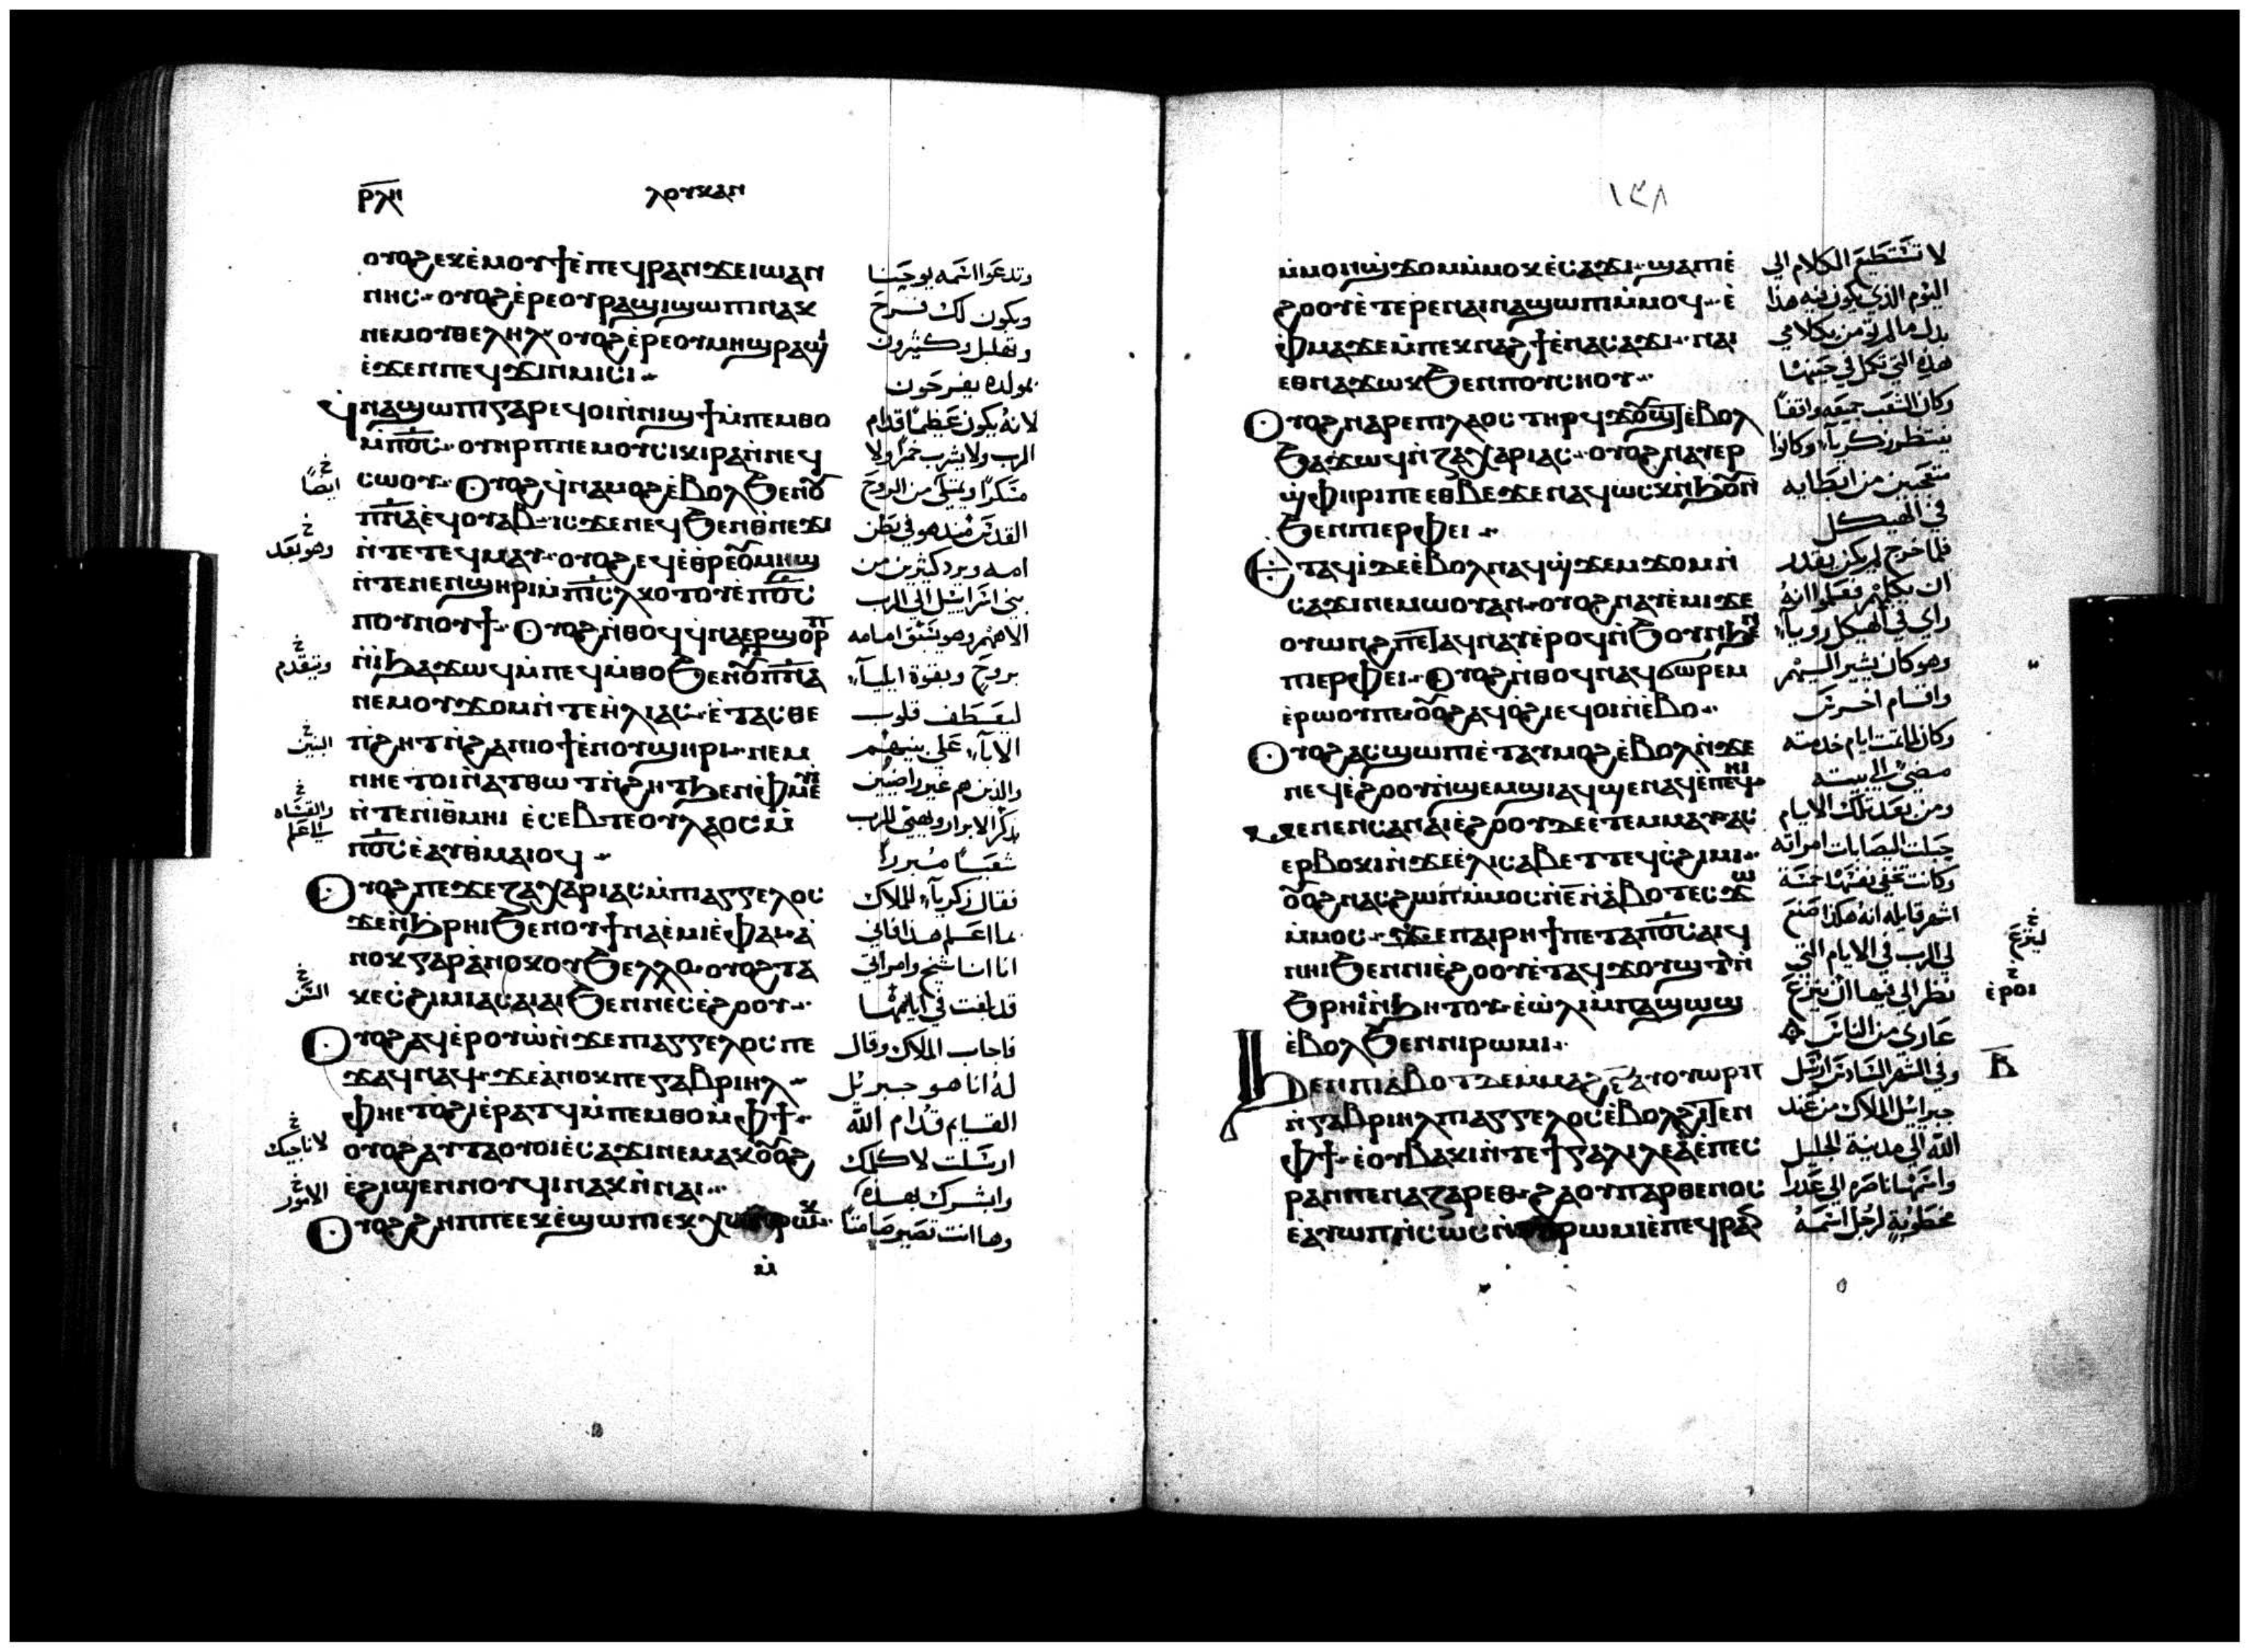 ⲣⲗⲏ ⲗⲟⲩⲕⲁⲛ
ⲟⲩⲟϩ ⲉⲕⲉ̀ⲙⲟⲩϯ ⲉ̀ⲡⲉϥⲣⲁⲛ ϫⲉ ⲓⲱⲁⲛ
ⲛⲏⲥ ⲟⲩⲟϩ ⲉ̀ⲣⲉ ⲟⲩⲣⲁϣⲓ ϣⲱⲡⲓ ⲛⲁⲕ
ⲛⲉⲙ ⲟⲩⲑⲉⲗⲏⲗ ⲟⲩⲟϩ ⲉ̀ⲣⲉ ⲟⲩⲙⲏϣ ⲣⲁϣⲓ
ⲉ̀ϫⲉⲛ ⲡⲉϥϫⲓⲛⲙⲓⲥⲓ
ϥ̀ⲛⲁϣⲱⲡⲓ ⲅⲁⲣ ⲉϥⲟⲓ ⲛ̀ⲛⲓϣϯ ⲙ̀ⲡⲉⲙⲑⲟ
ⲙ̀ⲡⲟ̅ⲥ̅ ⲟⲩⲏⲣⲡ ⲛⲉⲙ ⲟⲩⲥⲓⲕⲉⲣⲁ ⲛ̀ⲛⲉϥ
ⲥⲱⲟⲩ ⲟⲩⲟϩ ϥ̀ⲛⲁⲙⲟϩ ⲉ̀ⲃⲟⲗ ϧⲉⲛ ⲟⲩ
ⲡ̅ⲛ̅ⲁ̅ ⲉϥⲟⲩⲁⲃ ⲓⲥϫⲉⲛ ⲉϥϧⲉⲛ ⲑ̀ⲛⲉϫⲓ
ⲛ̀ⲧⲉ ⲧⲉϥⲙⲁⲩ ⲟⲩⲟϩ ⲉϥⲉ̀ⲑⲣⲉ ⲟⲩⲙⲏϣ
ⲛ̀ⲧⲉ ⲛⲉⲛϣⲏⲣⲓ ⲙ̀ⲡⲓ̅ⲥ̅ⲗ̅ ⲕⲟⲧⲟⲩ ⲉ̀ⲡⲟ̅ⲥ̅
ⲡⲟⲩⲛⲟⲩϯ ⲟⲩⲟϩ ⲛ̀ⲑⲟϥ ϥ̀ⲛⲁⲉⲣϣⲟⲣⲡ
ⲛ̀ϩⲓϫⲱϥ ⲙ̀ⲡⲉϥⲙ̀ⲑⲟ ϧⲉⲛ ⲟⲩⲡ̅ⲛ̅ⲁ̅
ⲛⲉⲙ ⲟⲩϫⲟⲙ ⲛ̀ⲧⲉ ⲏ̀ⲗⲓⲁⲥ ⲉ̀ⲧⲁⲥⲑⲉ
ⲡ̀ϩⲏⲧ ⲛ̀ϩⲁⲛⲓⲟϯ ⲉ̀ⲛⲟⲩϣⲏⲣⲓ ⲛⲉⲙ
ⲛⲏⲉⲧⲟⲓ ⲛ̀ⲁⲧⲑⲱⲧ ⲛ̀ϩⲏⲧ ϧⲉⲛ ⲫ̀ⲙⲉⲩⲓ
ⲛ̀ⲧⲉ ⲛⲓⲑ̀ⲙⲏⲓ ⲉ̀ⲥⲉⲃⲧⲉ ⲟⲩⲗⲁⲟⲥ ⲙ̀
ⲡⲟ̅ⲥ̅ ⲉ̀ⲁⲩⲑ̀ⲙⲁⲓⲟϥ
ⲟⲩⲟϩ ⲡⲉϫⲉ ⲍⲁⲭⲁⲣⲓⲁⲥ ⲙ̀ⲡⲓⲁⲅⲅⲉⲗⲟⲥ
ϫⲉ ⲛ̀ϧⲣⲏⲓ ϧⲉⲛ ⲟⲩ ϯⲛⲁⲉ̀ⲙⲓ ⲉ̀ⲫⲁⲓ ⲁ̀
ⲛⲟⲕ ⲅⲁⲣ ⲁ̀ⲛⲟⲕ ⲟⲩϧⲉⲗⲗⲟ ⲟⲩⲟϩ ⲧⲁ
ⲕⲉⲥ̀ϩⲓⲙⲓ ⲁⲥⲁⲓⲁⲓ ϧⲉⲛ ⲛⲉⲥⲉ̀ϩⲟⲟⲩ
ⲟⲩⲟϩ ⲁϥⲉ̀ⲣⲟⲩⲱ̀ ⲛ̀ϫⲉ ⲡⲓⲁⲅⲅⲉⲗⲟⲥ ⲡⲉ
ϫⲁϥ ⲛⲁϥ ϫⲉ ⲁ̀ⲛⲟⲕ ⲡⲉ ⲅⲁⲃⲣⲓⲏⲗ
ⲫⲏⲉⲧⲟ̀ϩⲓ ⲉ̀ⲣⲁⲧϥ ⲙ̀ⲡⲉⲙⲑⲟ ⲙ̀ⲫϯ
ⲟⲩⲟϩ ⲁⲩⲧⲁⲟⲩⲟⲓ ⲉ̀ⲥⲁϫⲓ ⲛⲉⲙⲁⲕ ⲟⲩⲟϩ
ⲉ̀ϩⲓϣⲉⲛⲛⲟⲩϥⲓ ⲛⲁⲕ ⲛ̀ⲛⲁⲓ
ⲟⲩⲟϩ ϩⲏⲡⲡⲉ ⲉⲕⲉ̀ϣⲱⲡⲓ ⲉⲕⲭⲱ ⲛ̀ⲣⲱⲕ
وتدعوا اسمه يوحنا
ويكون لك فرح
وتهليل وكثيرون
بمولده يفرحون
لانه يكون عظيمًا قدام
الرب ولا يشرب خمرًا ولا
مسكرًا ويمتلي من الروح
القدس منذ هو في بطن
امه ويرد كثيرين من
بني اسراييل الى الرب
الاههم وهو يسبق امامه
بروح وبقوة ايلياء
ليعطف قلوب
الاباء على بنيهم
والذين هم غير راضيين
بفكر الابرار ويهيي للرب
شعبًا مبررًا
فقال زكرياء للملاك
بما اعلم هذا فاني
انا انا شيخ وامراتي
قد طعنت في ايامها
فاجاب الملاك وقال
له انا هو جبريل
القايم قدام الله
ارسلت لاكلمك
وابشرك بهذه
وها انت تصير صامتًا
ايضًا
وهو بعد
ويتقدم
البنين
السن
لاناجيك
الامور
١٣٨
ⲙ̀ⲙⲟⲛ ϣ̀ϫⲟⲙ ⲙ̀ⲙⲟⲕ ⲉ̀ⲥⲁϫⲓ ϣⲁ ⲡⲓⲉ̀
ϩⲟⲟⲩ ⲉ̀ⲧⲉⲣⲉ ⲛⲁⲓ ⲛⲁϣⲱⲡⲓ ⲙ̀ⲙⲟϥ ⲉ̀
ⲫ̀ⲙⲁ ϫⲉ ⲙ̀ⲡⲉⲕⲛⲁϩϯ ⲉ̀ⲛⲁⲥⲁϫⲓ ⲛⲁⲓ
ⲉⲑⲛⲁϫⲱⲕ ϧⲉⲛ ⲡⲟⲩⲥⲏⲟⲩ
ⲟⲩⲟϩ ⲛⲁⲣⲉ ⲡⲓⲗⲁⲟⲥ ⲧⲏⲣϥ ϫⲟⲩϣⲧ ⲉ̀ⲃⲟⲗ
ϧⲁϫⲱϥ ⲛ̀ⲍⲁⲭⲁⲣⲓⲁⲥ ⲟⲩⲟϩ ⲛⲁⲩⲉⲣ
ϣ̀ⲫⲏⲣⲓ ⲡⲉ ⲉⲑⲃⲉ ϫⲉ ⲛⲁϥⲱⲥⲕ ⲛ̀ϧⲟⲩⲛ
ϧⲉⲛ ⲡⲓⲉⲣⲫⲉⲓ
ⲉⲧⲁϥⲓ̀ ⲇⲉ ⲉ̀ⲃⲟⲗ ⲛⲁϥϣ̀ϫⲉⲙϫⲟⲙ ⲛ̀
ⲥⲁϫⲓ ⲛⲉⲙⲱⲟⲩ ⲁⲛ ⲟⲩⲟϩ ⲛⲁⲩⲉ̀ⲙⲓ ϫⲉ
ⲟⲩⲱⲛϩ ⲡⲉⲧⲁϥⲛⲁⲩ ⲉ̀ⲣⲟϥ ⲛ̀ϧⲟⲩⲛ ϧⲉⲛ
ⲡⲓⲉⲣⲫⲉⲓ ⲟⲩⲟϩ ⲛ̀ⲑⲟϥ ⲛⲁϥϭⲱⲣⲉⲙ
ⲉ̀ⲣⲱⲟⲩ ⲡⲉ ⲟⲩⲟϩ ⲁϥⲟ̀ϩⲓ ⲉϥⲟⲓ ⲛ̀ⲉⲃⲟ
ⲟⲩⲟϩ ⲁⲥϣⲱⲡⲓ ⲉ̀ⲧⲁⲩⲙⲟϩ ⲉ̀ⲃⲟⲗ ⲛ̀ϫⲉ
ⲛⲉϥⲉ̀ϩⲟⲟⲩ ⲛ̀ϣⲉⲙϣⲓ ⲁϥϣⲉⲛⲁϥ ⲉ̀ⲡⲉϥⲏⲓ
ⲙⲉⲛⲉⲛⲥⲁ ⲛⲁⲓⲉ̀ϩⲟⲟⲩ ⲇⲉ ⲉ̀ⲧⲉⲙⲙⲁⲩ ⲁⲥ
ⲉⲣⲃⲟⲕⲓ ⲛ̀ϫⲉ ⲉ̀ⲗⲓⲥⲁⲃⲉⲧ ⲧⲉϥⲥ̀ϩⲓⲙⲓ
ⲟⲩⲟϩ ⲛⲁⲥϩⲱⲡ ⲙ̀ⲙⲟⲥ ⲛ̀ⲉ̅ ⲛ̀ⲁ̀ⲃⲟⲧ ⲉⲥϫⲱ
ⲙ̀ⲙⲟⲥ ϫⲉ ⲡⲁⲓⲣⲏϯ ⲡⲉⲧⲁ ⲡⲟ̅ⲥ̅ ⲁⲓϥ
ⲛⲏⲓ ϧⲉⲛ ⲛⲓⲉ̀ϩⲟⲟⲩ ⲉ̀ⲧⲁϥϫⲟⲩϣⲧ ⲛ̀
ϧⲣⲏⲓ ⲛ̀ϧⲏⲧⲟⲩ ⲉ̀ⲱ̀ⲗⲓ ⲙ̀ⲡⲁϣⲱϣ
ⲉ̀ⲃⲟⲗ ϧⲉⲛ ⲛⲓⲣⲱⲙⲓ
ϧⲉⲛ ⲡⲓⲁ̀ⲃⲟⲧ ⲇⲉ ⲙ̀ⲙⲁϩ ⲋ̅ ⲁⲩⲟⲩⲱⲣⲡ
ⲛ̀ⲅⲁⲃⲣⲓⲏⲗ ⲡⲓⲁⲅⲅⲉⲗⲟⲥ ⲉ̀ⲃⲟⲗ ϩⲓⲧⲉⲛ
ⲫϯ ⲉ̀ⲟⲩⲃⲁⲕⲓ ⲛ̀ⲧⲉ ϯⲅⲁⲗⲓⲗⲉⲁ̀ ⲉ̀ⲡⲉⲥ
ⲣⲁⲛ ⲡⲉ ⲛⲁⲍⲁⲣⲉⲑ ϩⲁ ⲟⲩⲡⲁⲣⲑⲉⲛⲟⲥ
ⲉ̀ⲁⲩⲱⲡ ⲛ̀ⲥⲱⲥ ⲛ̀ⲟⲩⲣⲱⲙⲓ ⲉ̀ⲡⲉϥⲣⲁⲛ
لا تستطيع الكلام الى
اليوم الذي يكون فيه هذا
بدل ما لم تومن بكلامي
هذه التي تكمل في حينها
وكان الشعب جميعه واقفًا
ينتظر زكرياء وكانوا
متعجبين من ابطايه
في الهيكل
فلما خرج لم يكن يقدر
ان يكلمهم فعلموا انه
راي في الهيكل روياء
وهو كان يشير اليهم
واقام اخرس
وكان لما تمت ايام خدمته
مضى الى بيته
ومن بعد تلك الايام
حبلت اليصابات امراته
وكانت تخفي نفسها خمسة
اشهر قايله انه هكذا صنع
لي الرب في الايام التي
نظر الي فيها ان ينزع
عاري من الناس
وفي الشهر السادس ارسل
جبراييل الملاك من عند
الله الى مدينة الجليل
واسمها ناصره الى عذرا
مخطوبة لرجل اسمه
لينزع
ⲉ̀ⲣⲟⲓ
ⲃ̅